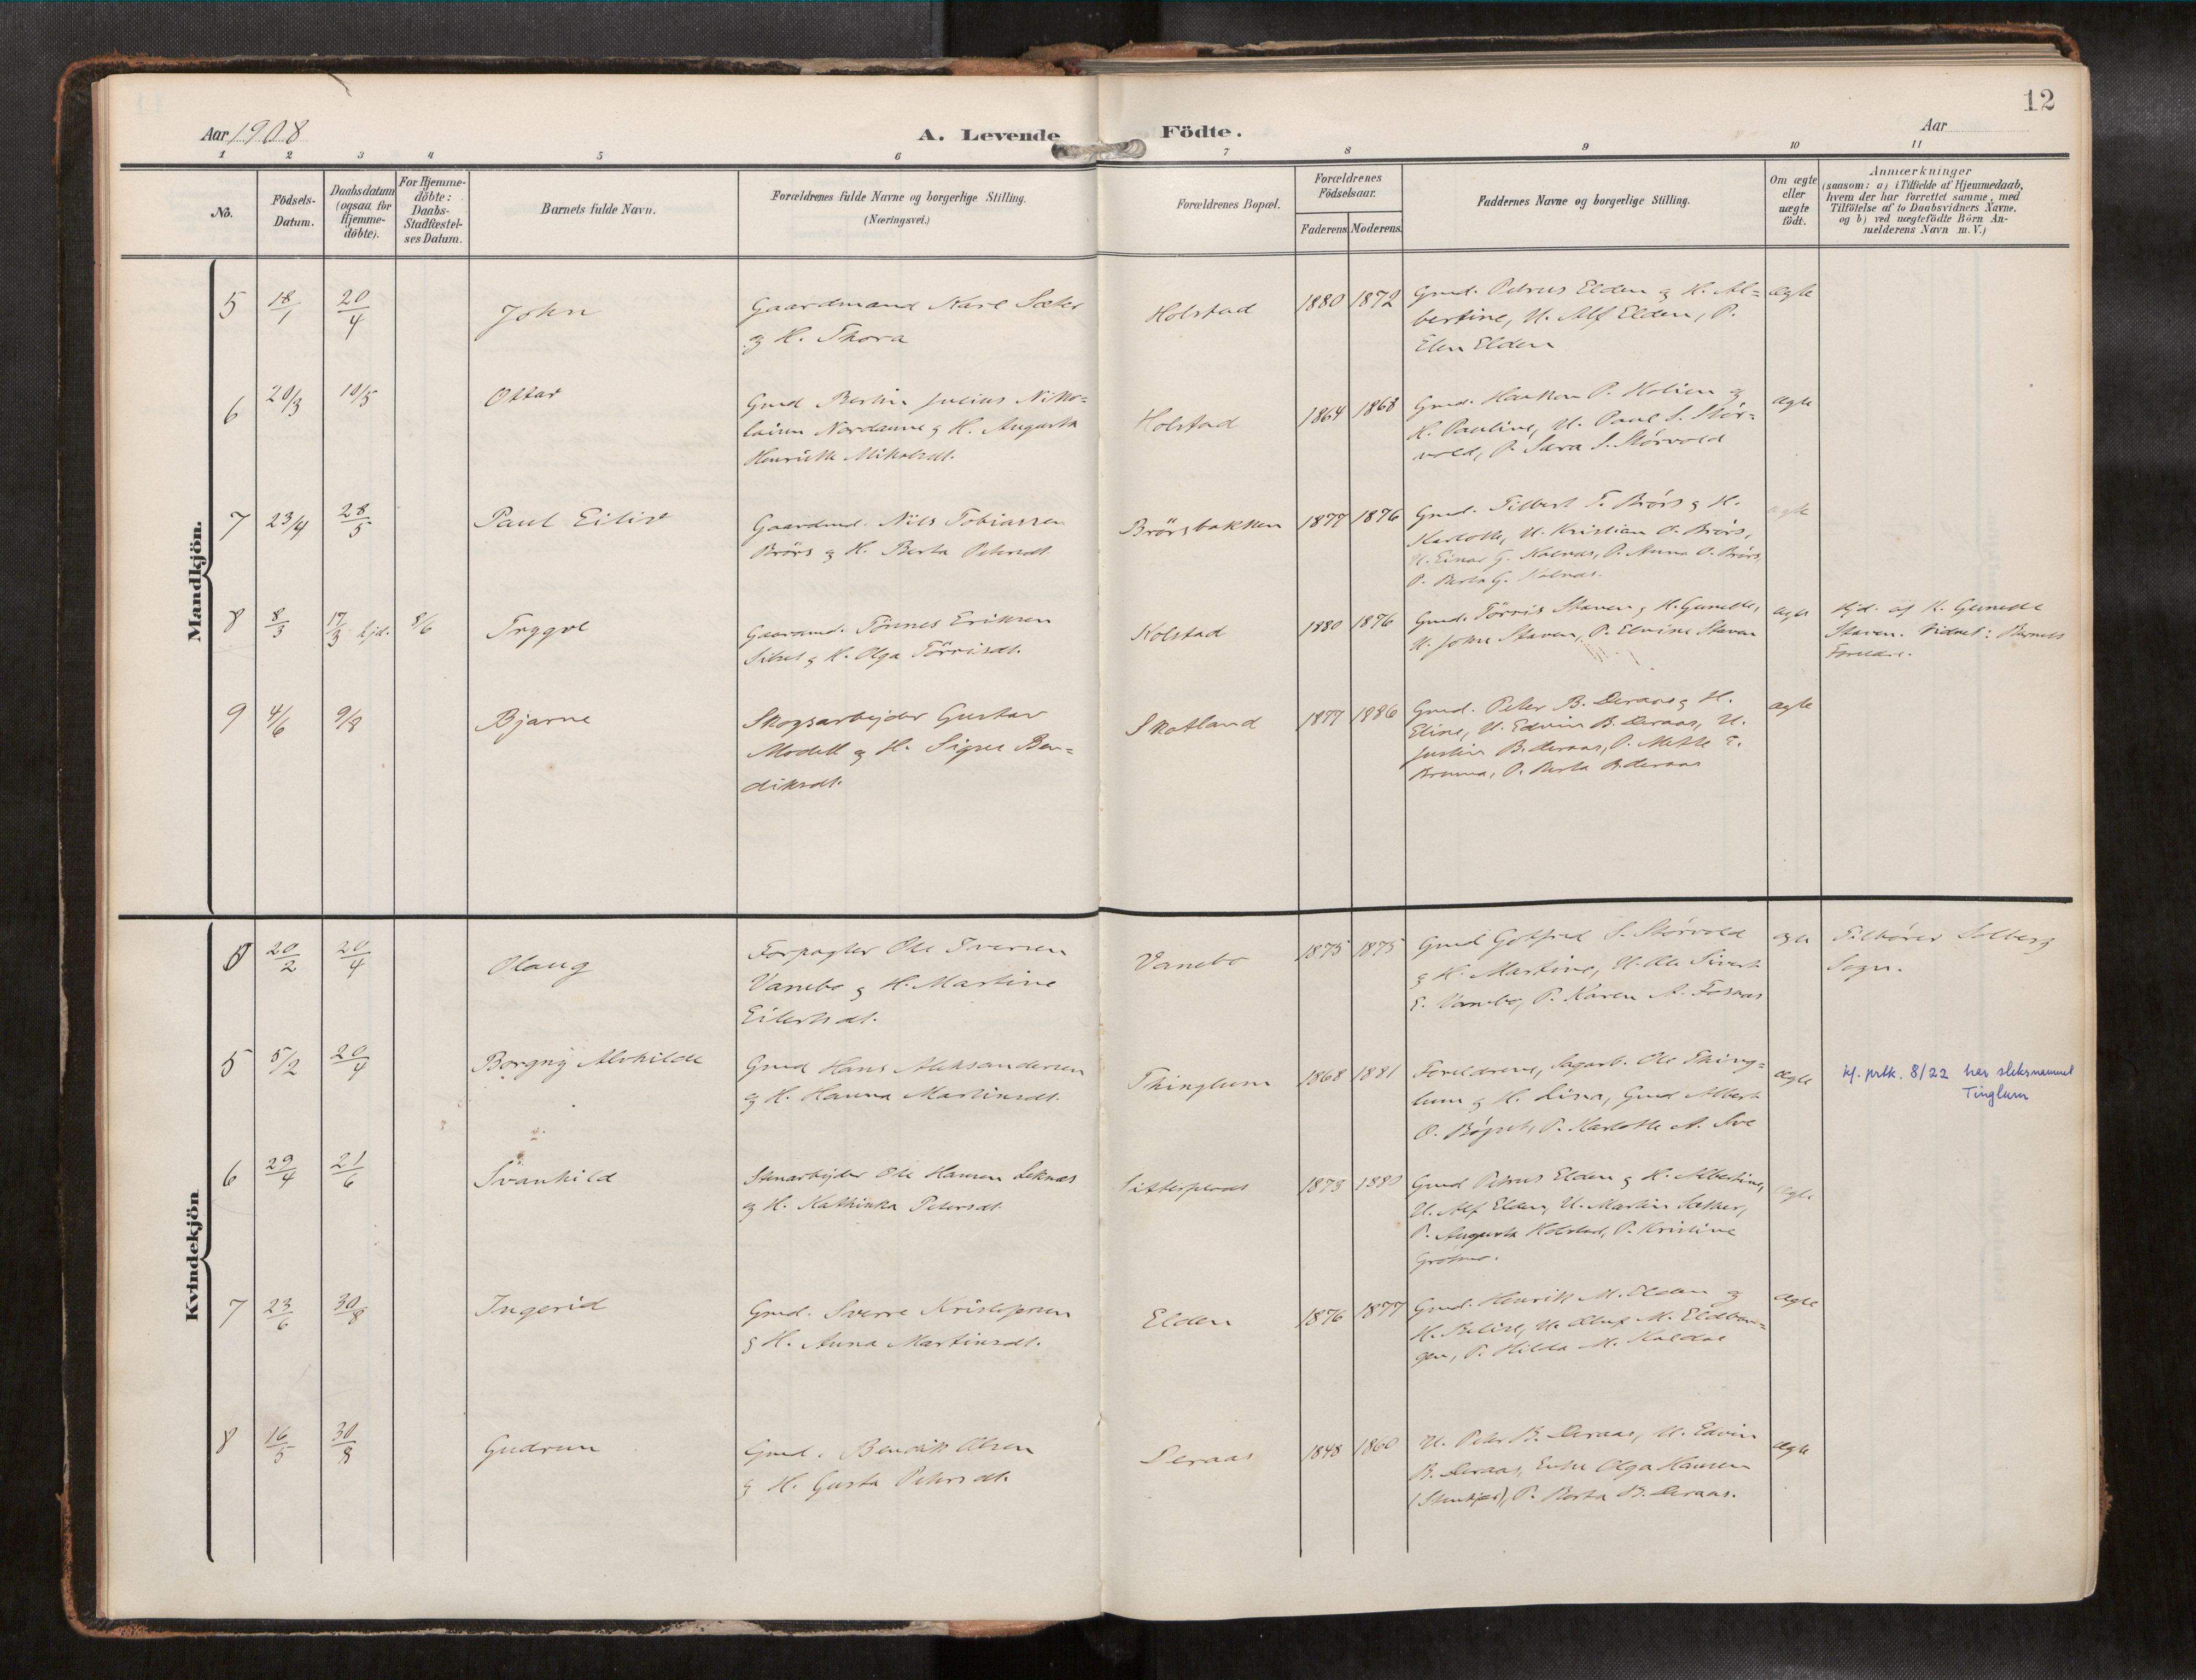 12
Aar 1908
A. Levende Födte.
Aar
1 2 3 4 5 6 7 8 9 10 11
No.
Födsels-
Datum.
Daabsdatum
(ogsaa for
Hjemme-
döbte).
For Hjemme-
döbte:
Daabs-
Stadfæstel-
ses Datum.
Barnets fulde Navn.
Forældrenes fulde Navne og borgerlige Stilling.
(Næringsvei.)
Forældrenes Bopæl.
Forældrenes
Födselsaar.
Faderens. Moderens.
Faddernes Navne og borgerlige Stilling.
Om ægte
eller
uægte
födt.
Anmærkninger
(saasom: a) i Tilfælde af Hjemmedaab,
hvem der har forrettet samme, med
Tilföielse af to Daabsvidners Navne,
og b) ved uægtefödte Börn An-
melderens Navn m. V.)
Mandkjön.
5 18/1 20/4 John
Gaardmand Karl Sæter
og H. Thora
Holstad 1880 1872
Gmd. Petrus Elden og H. Al=
bertine, U. Alf Elden, P.
Elen Elden
ægte
6 20/3 10/5 Ottar
Gmd Bertin Julius Niko=
laisen Nordaune og H. Augusta
Henriette Mikalsdt.
Holstad 1864 1868
Gmd. Haakon P. Holien og
H. Pauline, U. Paul S. Stör=
vold, P. Sara S. Störvold
ægte
7 23/4 28/5 Paul Eiliv
Gaardmd. Nils Tobiassen
Brörs og H. Berta Petersdt.
Brörsbakken 1877 1876
Gmd. Tilbert T. Brörs og H.
Karlotte, U. Kristian O. Brörs,
U. Einar G. Kolnæs, P. Anna O. Brörs,
P. Berta G. Kolnæs.
ægte
8 8/3 17/3 hjd. 8/6 Trygve
Gaardmd. Tönnes Eriksen
Silset og H. Olga Törrisdt.
Kolstad 1880 1876
Gmd. Törris Staven og H. Gunelle,
U. John Staven, P. Elvine Staven
ægte
Hjd. af K. Gunelle
Staven. Vidnet: Barnets
Forældre.
9 4/6 9/8 Bjarne
Skogsarbejder Gustav
Modell og H. Signe Ben=
diksdt.
Skotland 1877 1886
Gmd. Peter B. Deraas og H.
Eline, U. Edvin B. Deraas, U.
Justin B. Deraas, P. Mette
P. Berta B. Deraas
ægte
Kvindekjön
20/2 20/4 Olaug
Forpagter Ole Iversen
Vanebo og H. Martine
Eilertsdt.
Vanebo 1875 1875
Gmd Gotfred S. Störvold
og H. Martine, U. Ole Sivert
E. Vanebo, P. Karen A. Fosnæs
ægte
Tilhörer Solberg
Sogn.
5 5/2 20/4 Borgny Alvhilde
Gmd Hans Aleksandersen
og H. Hanna Martinsdt.
Thinglum 1868 1881
Foreldrene, Sagarb. Ole Thing=
lum og H. Lina, Gmd Albert
O. Bögset, P. Karlotte A. Sve
ægte
kf. prtk. 8/22 her slektsnavnet
Tinglum
6 29/4 21/6 Svanhild
Stenarbejder Ole Hansen Leknæs
og H. Kathinka Petersdt.
1873
Gmd Petrus Elden og H. Albertine,
U. Alf Elden, U. Martin Sæther,
P. Augusta Holstad, P. Kristine
ægte
7 23/6 30/8 Ingerid
Gmd. Sverre Kristofersen
og H. Anna Martinsdt.
Elden 1876 1877
Gmd. Henrik M. Elden og
H. Beline, U. Oluf M. Eldbran=
gen, P. Hilda M. Kaldal
ægte
8 16/5 30/8 Gudrun
Gmd. Bendik Olsen
og H. Gusta Petersdt.
Deraas 1848 1860
U. Peter B. Deraas, U. Edvin
B. Deraas, Enke Olga Hansen
(Stenkjær), P. Berta B. Deraas.
ægte